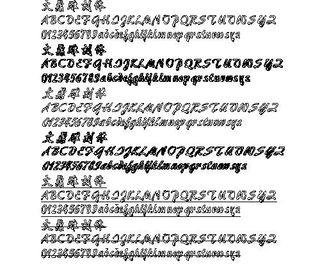 文鼎
ABCDEFGHIJKLMNOPQRSTUVWXYZ
0123456789abcdefghijklmnopqrstuvwxyz
文鼎
ABCDEFGHIJKLMNOPQRSTUVWXYZ
0123456789abcdefghijklmnopqrstuvwxyz
文鼎
ABCDEFGHIJKLMNOPQRSTUVWXYZ
0123456789abcdefghijklmnopqrstuvwxyz
文鼎
ABCDEFGHIJKLMNOPQRSTUVWXYZ
0123456789abcdefghijklmnopqrstuvwxyz
文鼎
ABCDEFGHIJKLMNOPQRSTUVWXYZ
0123456789abcdefghijklmnopqrstuvwxyz
文鼎
ABCDEFGHIJKLMNOPQRSTUVWXYZ
0123456789abcdefghijklmnopqrstuvwxyz